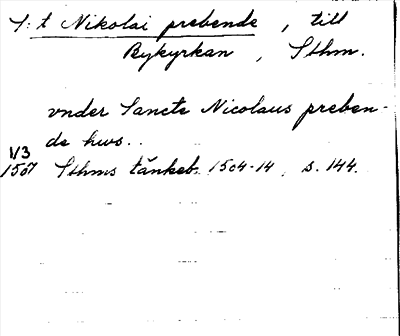 S:t Nikolai prebende, till
Bykyrkan, Sthm.
vnder Sancte Nicolaus preben-
de hws..
1/3
1507 Sthms tänkeb. 1504-14, s. 144.